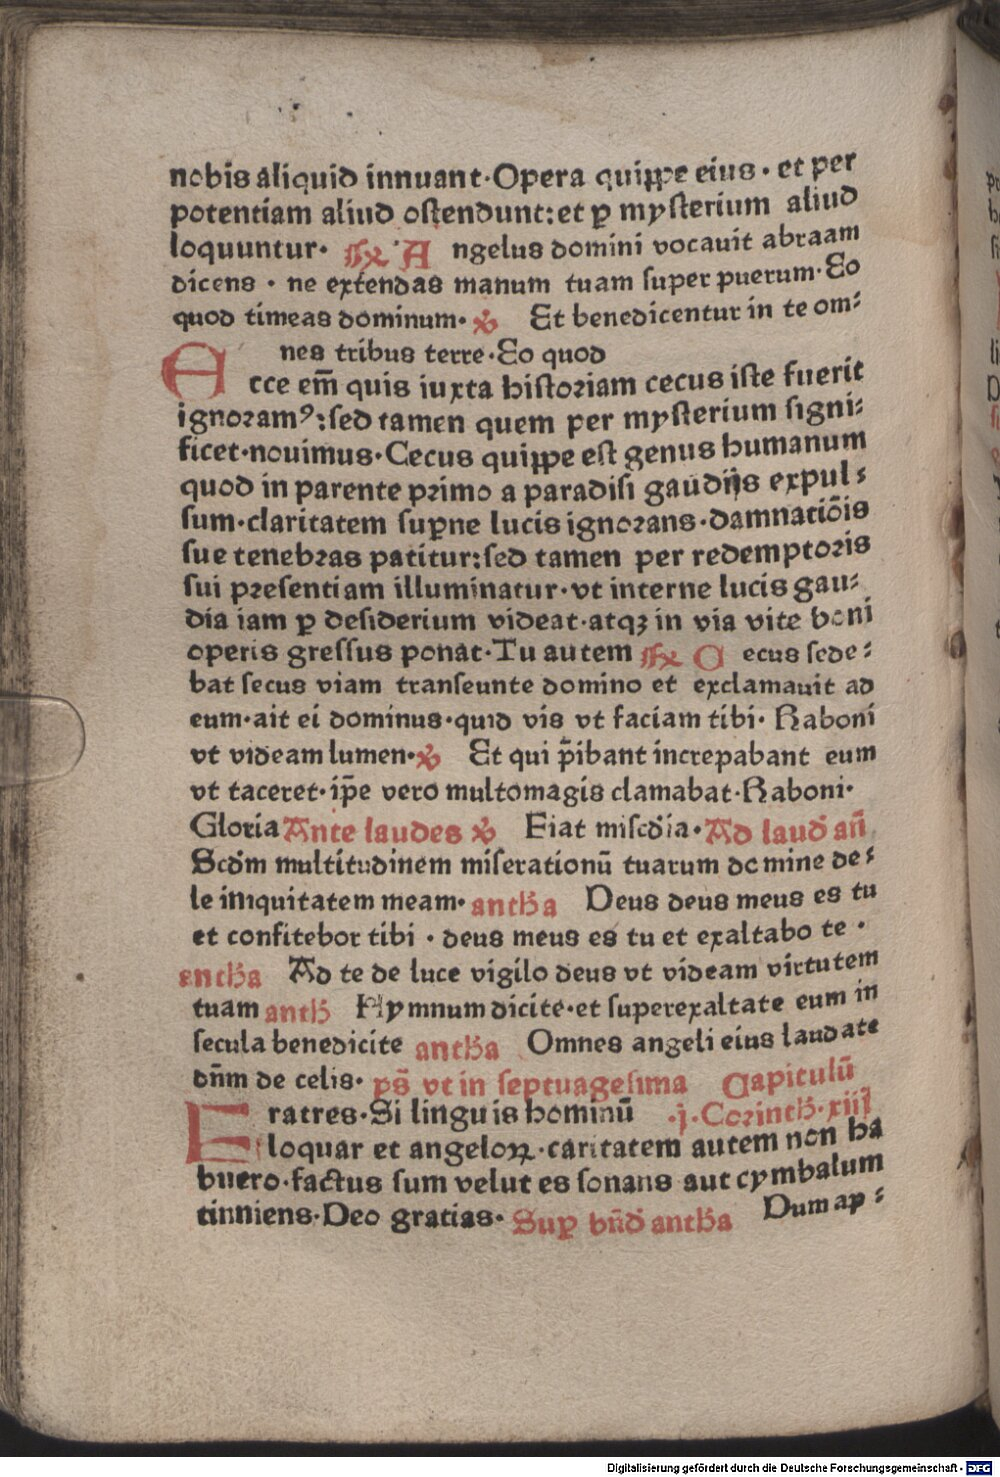 nobis aliquid innuant·Opera quippe eius·et per
potentiam aliud ostendunt:et ꝑ mysterium aliud
loquuntur· ℟ Angelus domini vocauit abraam
dicens · ne extendas manum tuam super puerum·Eo
quod timeas dominum· ℣ Et benedicentur in te om⸗
nes tribus terre·Eo quod
Ecce em̄ quis iuxta historiam cecus iste fuerit
ignoramꝰ:sed tamen quem per mysterium signi⸗
ficet·nouimus·Cecus quippe est genus humanum
quod in parente primo a paradisi gaudijs expul⸗
sum·claritatem suꝑne lucis ignorans·damnatiōis
sue tenebras patitur:sed tamen per redemptoris
sui presentiam illuminatur·vt interne lucis gau⸗
dia iam ꝑ desiderium videat·atqꝫ in via vite boni
operis gressus ponat·Tu autem ℟ Cecus sede⸗
bat secus viam transeunte domino et exclamauit ad
eum·ait ei dominus·quid vis vt faciam tibi· Raboni
vt videam lumen· ℣ Et qui p̄ibant increpabant eum
vt taceret·ip̄e vero multomagis clamabat·Raboni·
Gloria Ante laudes ℣ Fiat misc̄dia· Ad laud̄ an̄
Scd̄m multitudinem miserationū tuarum domine de⸗
le iniquitatem meam· antħa Deus deus meus es tu
et confitebor tibi · deus meus es tu et exaltabo te ·
antħa Ad te de luce vigilo deus vt videam virtutem
tuam antħ Hymnum dicite·et superexaltate eum in
secula benedicite antħa Omnes angeli eius laudate
dn̄m de celis· ps̄ vt in septuagesima Capitulū
Fratres·Si linguis hominū ·j·Corinth·xiij
loquar et angeloꝝ·caritatem autem non ha
buero·factus sum velut es sonans aut cymbalum
tinniens·Deo gratias· Suꝑ bn̄d̄ antħa Dum ap⸗
Digitalisierung gefördert durch die Deutsche Forschungsgemeinschaft - DFG